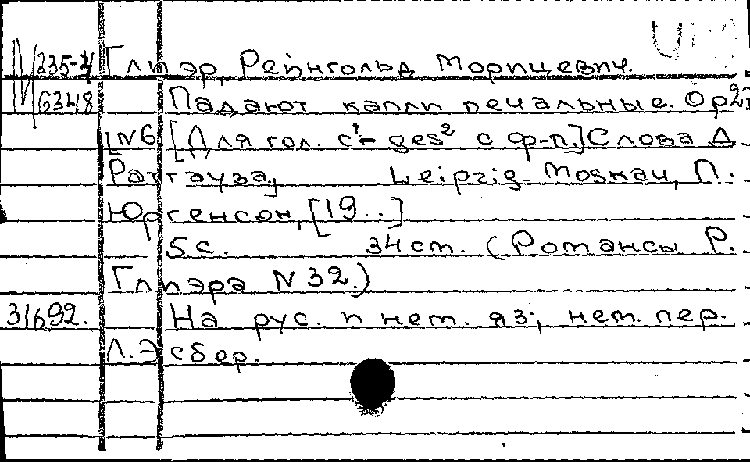 М 235-4 Глиэр, РейнгольдМорицевич.
М 6348 Падают капли печальные. Ор 27
№6 [Для гол. c¹- ges² с ф-п.] Слова Д.
Ратгауза, Leipzig-Moskau, П.
Юргенсон, [19..]
5с. 34 cm. (Романсы Р.
Глиэра N 32.)
31692. На рус. и нем. яз., нем. пер.
Л. Эсбер.